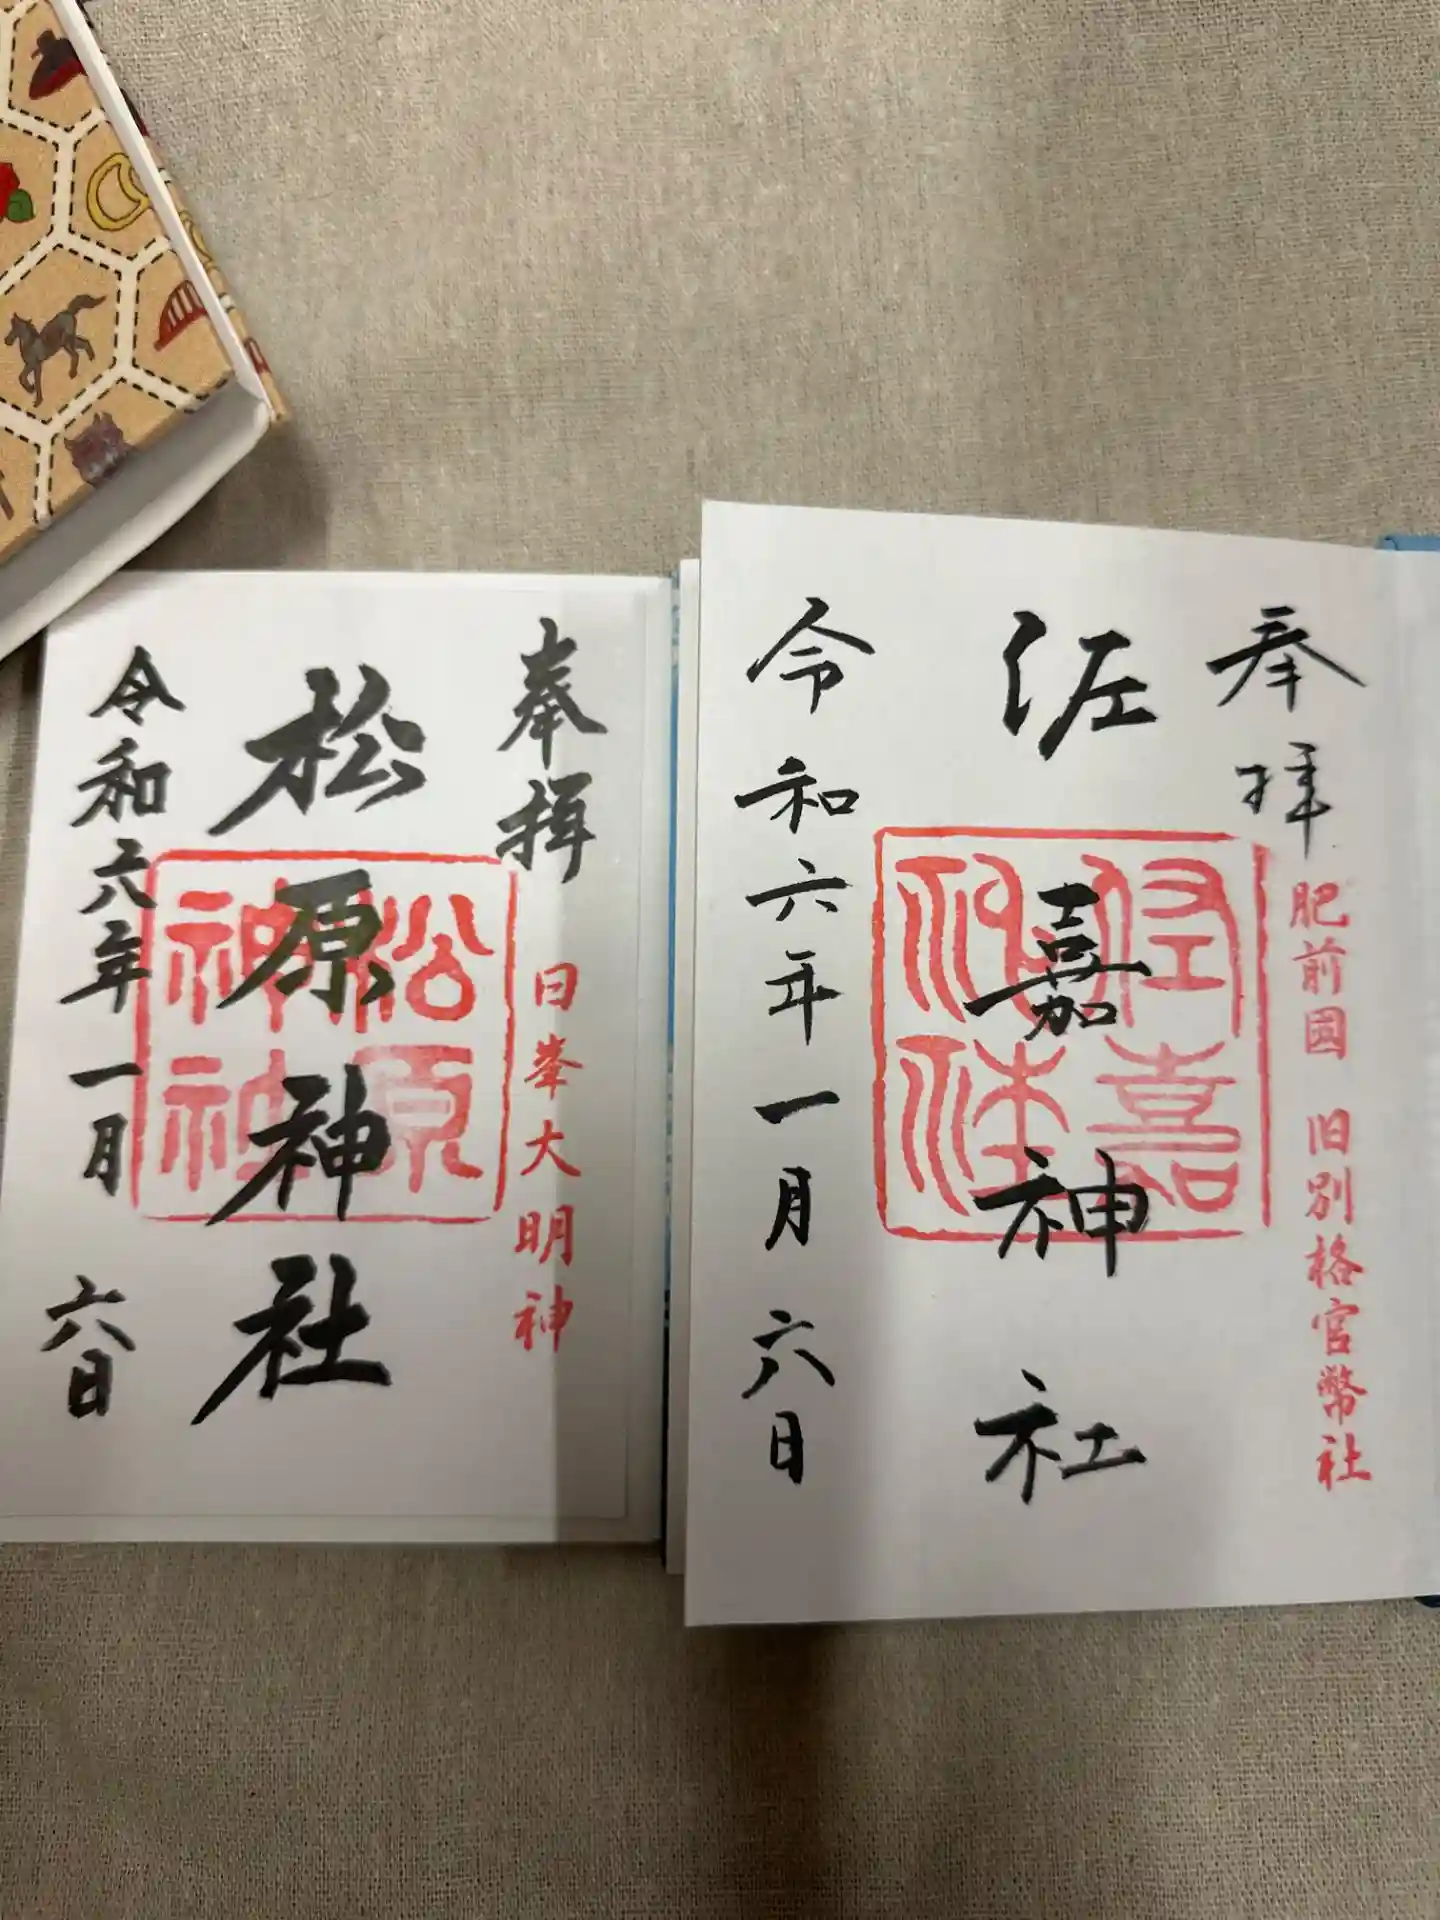 奉拝
肥前國 旧別格官幣社
佐嘉神社
令和六年一月六日
奉拝
日峯大明神
松原神社
松原神社
令和六年一月六日